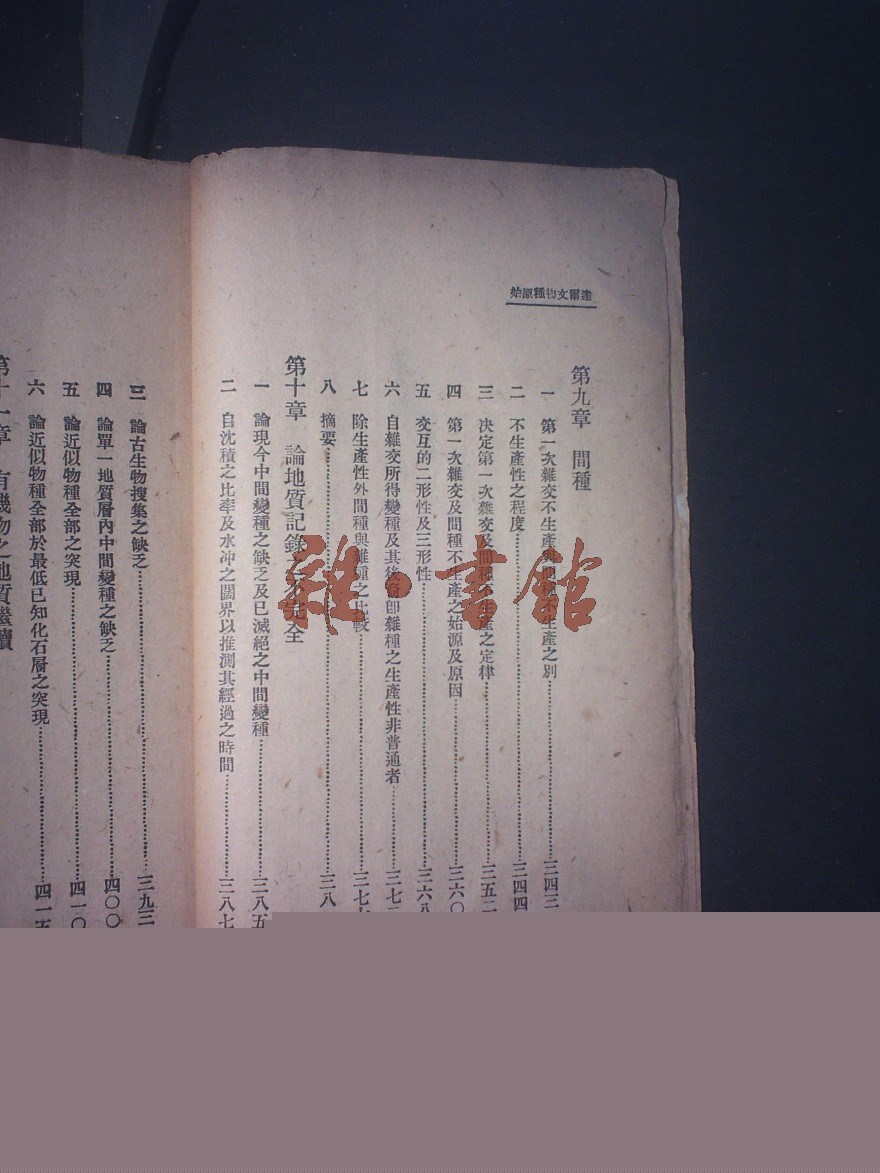 達爾文物種原始
第九章　間種
一　第一次雜交不生產與間種不生產之別……三四三
二　不生產性之程度……三四四
三　決定第一次雜交及間種不生產之定律……三五二
四　第一次雜交及間種不生產之始源及原因……三六〇
五　交互的二形性及三形性……三六八
六　自雜交所得變種及其後裔卽雜種之生產性非普通者……三七
七　除生產性外間種與雜種之比較……三七
八　摘要……三八
第十章　論地質記錄之不完全
一　論現今中間變種之缺乏及已滅絕之中間變種……三八五
二　自沈積之比率及水冲之闊界以推測其經過之時間……三八七
三　論古生物搜集之缺乏……三九三
四　論單一地質層內中間變種之缺乏……四〇〇
五　論近似物種全部之突現……四一〇
六　論近似物種全部於最低已知化石層之突現……四一五
第十一章　有機物之地質繼續
雜·書館